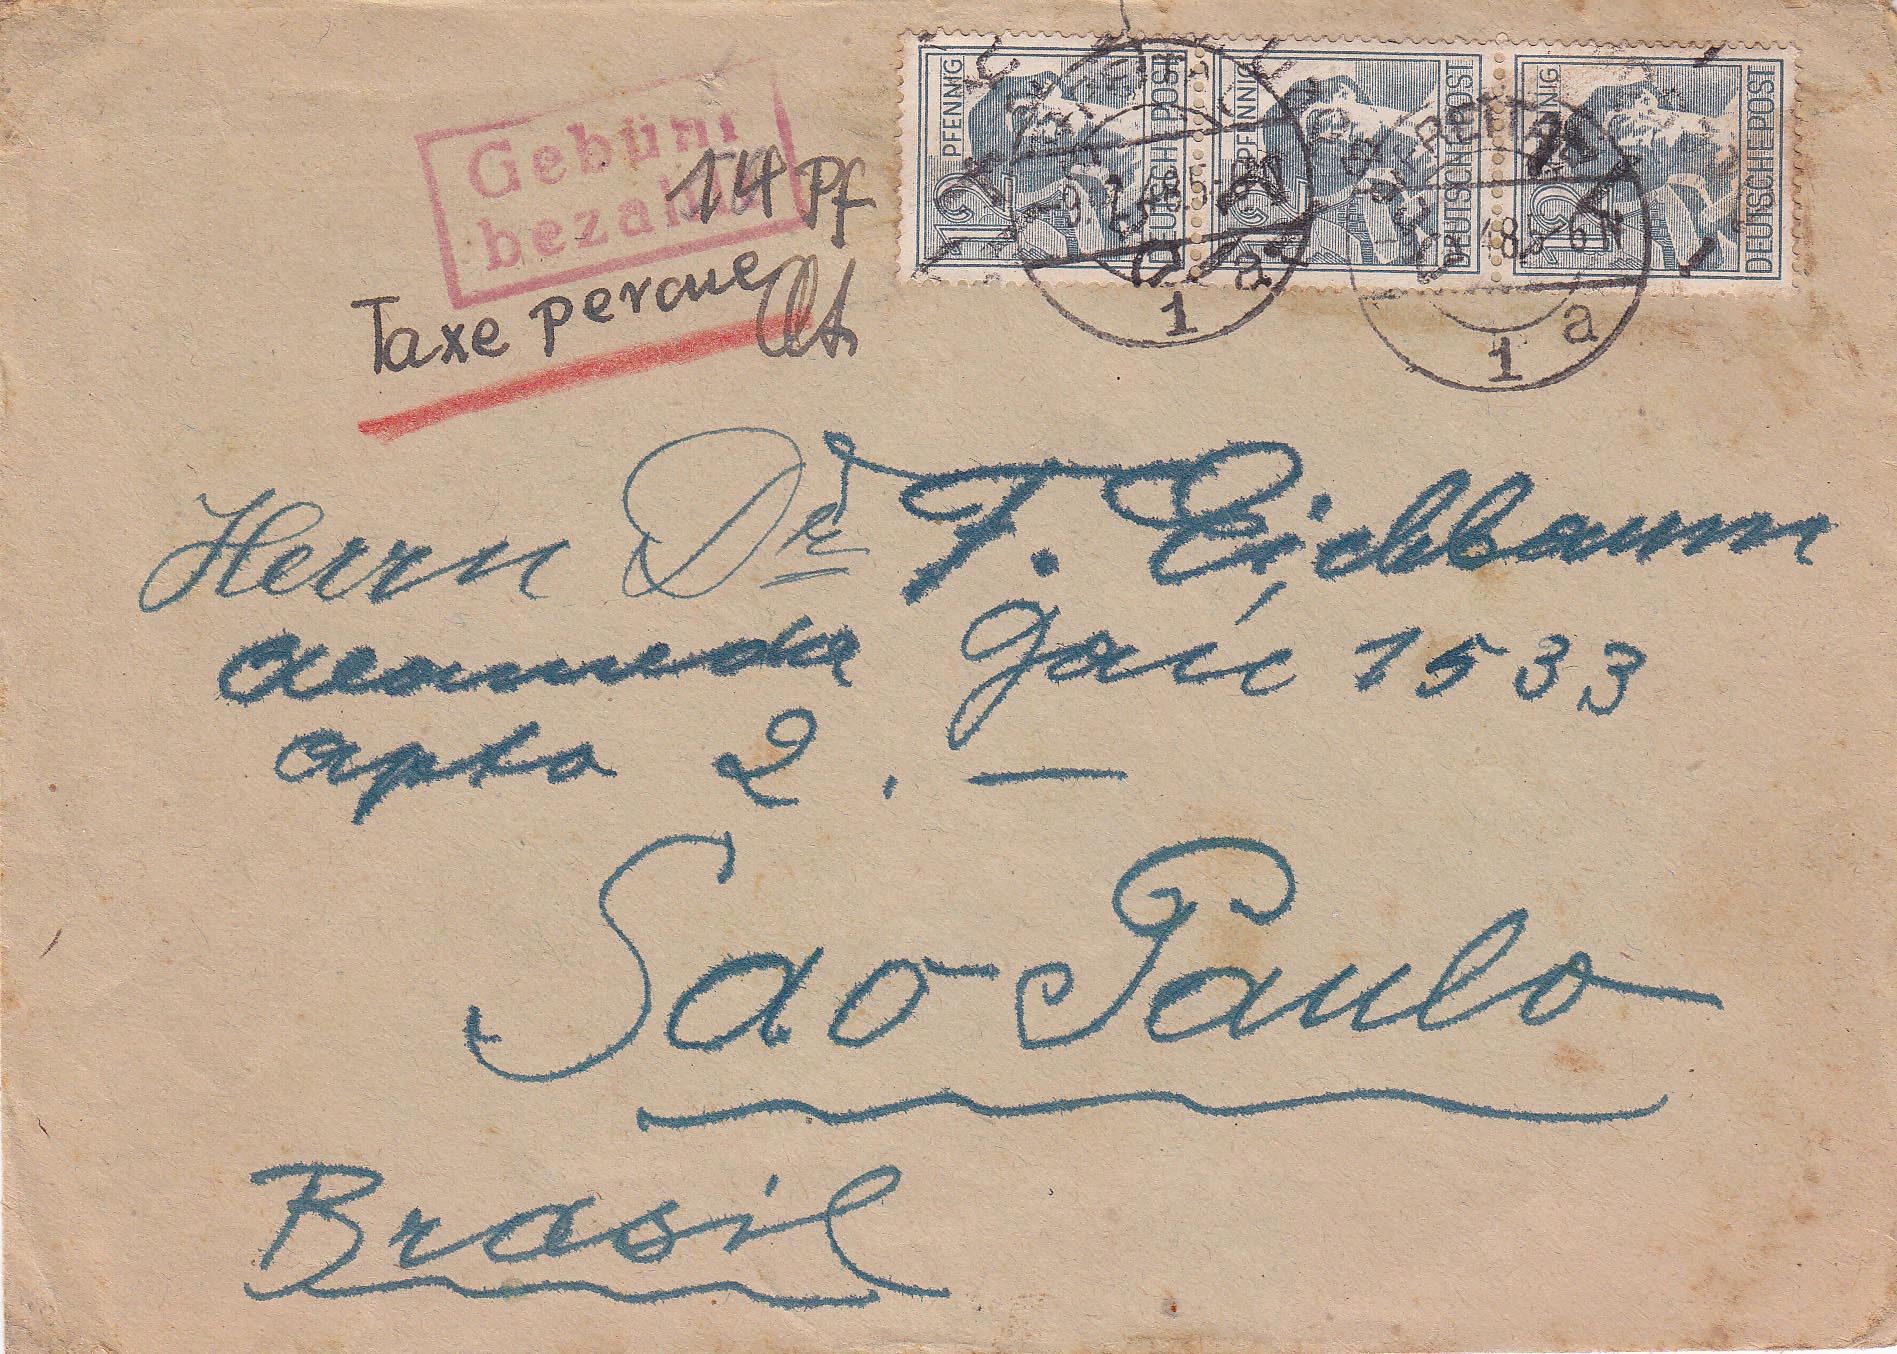 Gebühr
bezahlt
14 Pf
Taxe percue
12 PFENNIG DEUTSCHE POST
12 PFENNIG DEUTSCHE POST
12 PFENNIG DEUTSCHE POST
1 a
1 a
Herrn Dr F. Eichbaum
Alameda Jaú 1533
Apto 2. —
Sao Paulo
Brasil